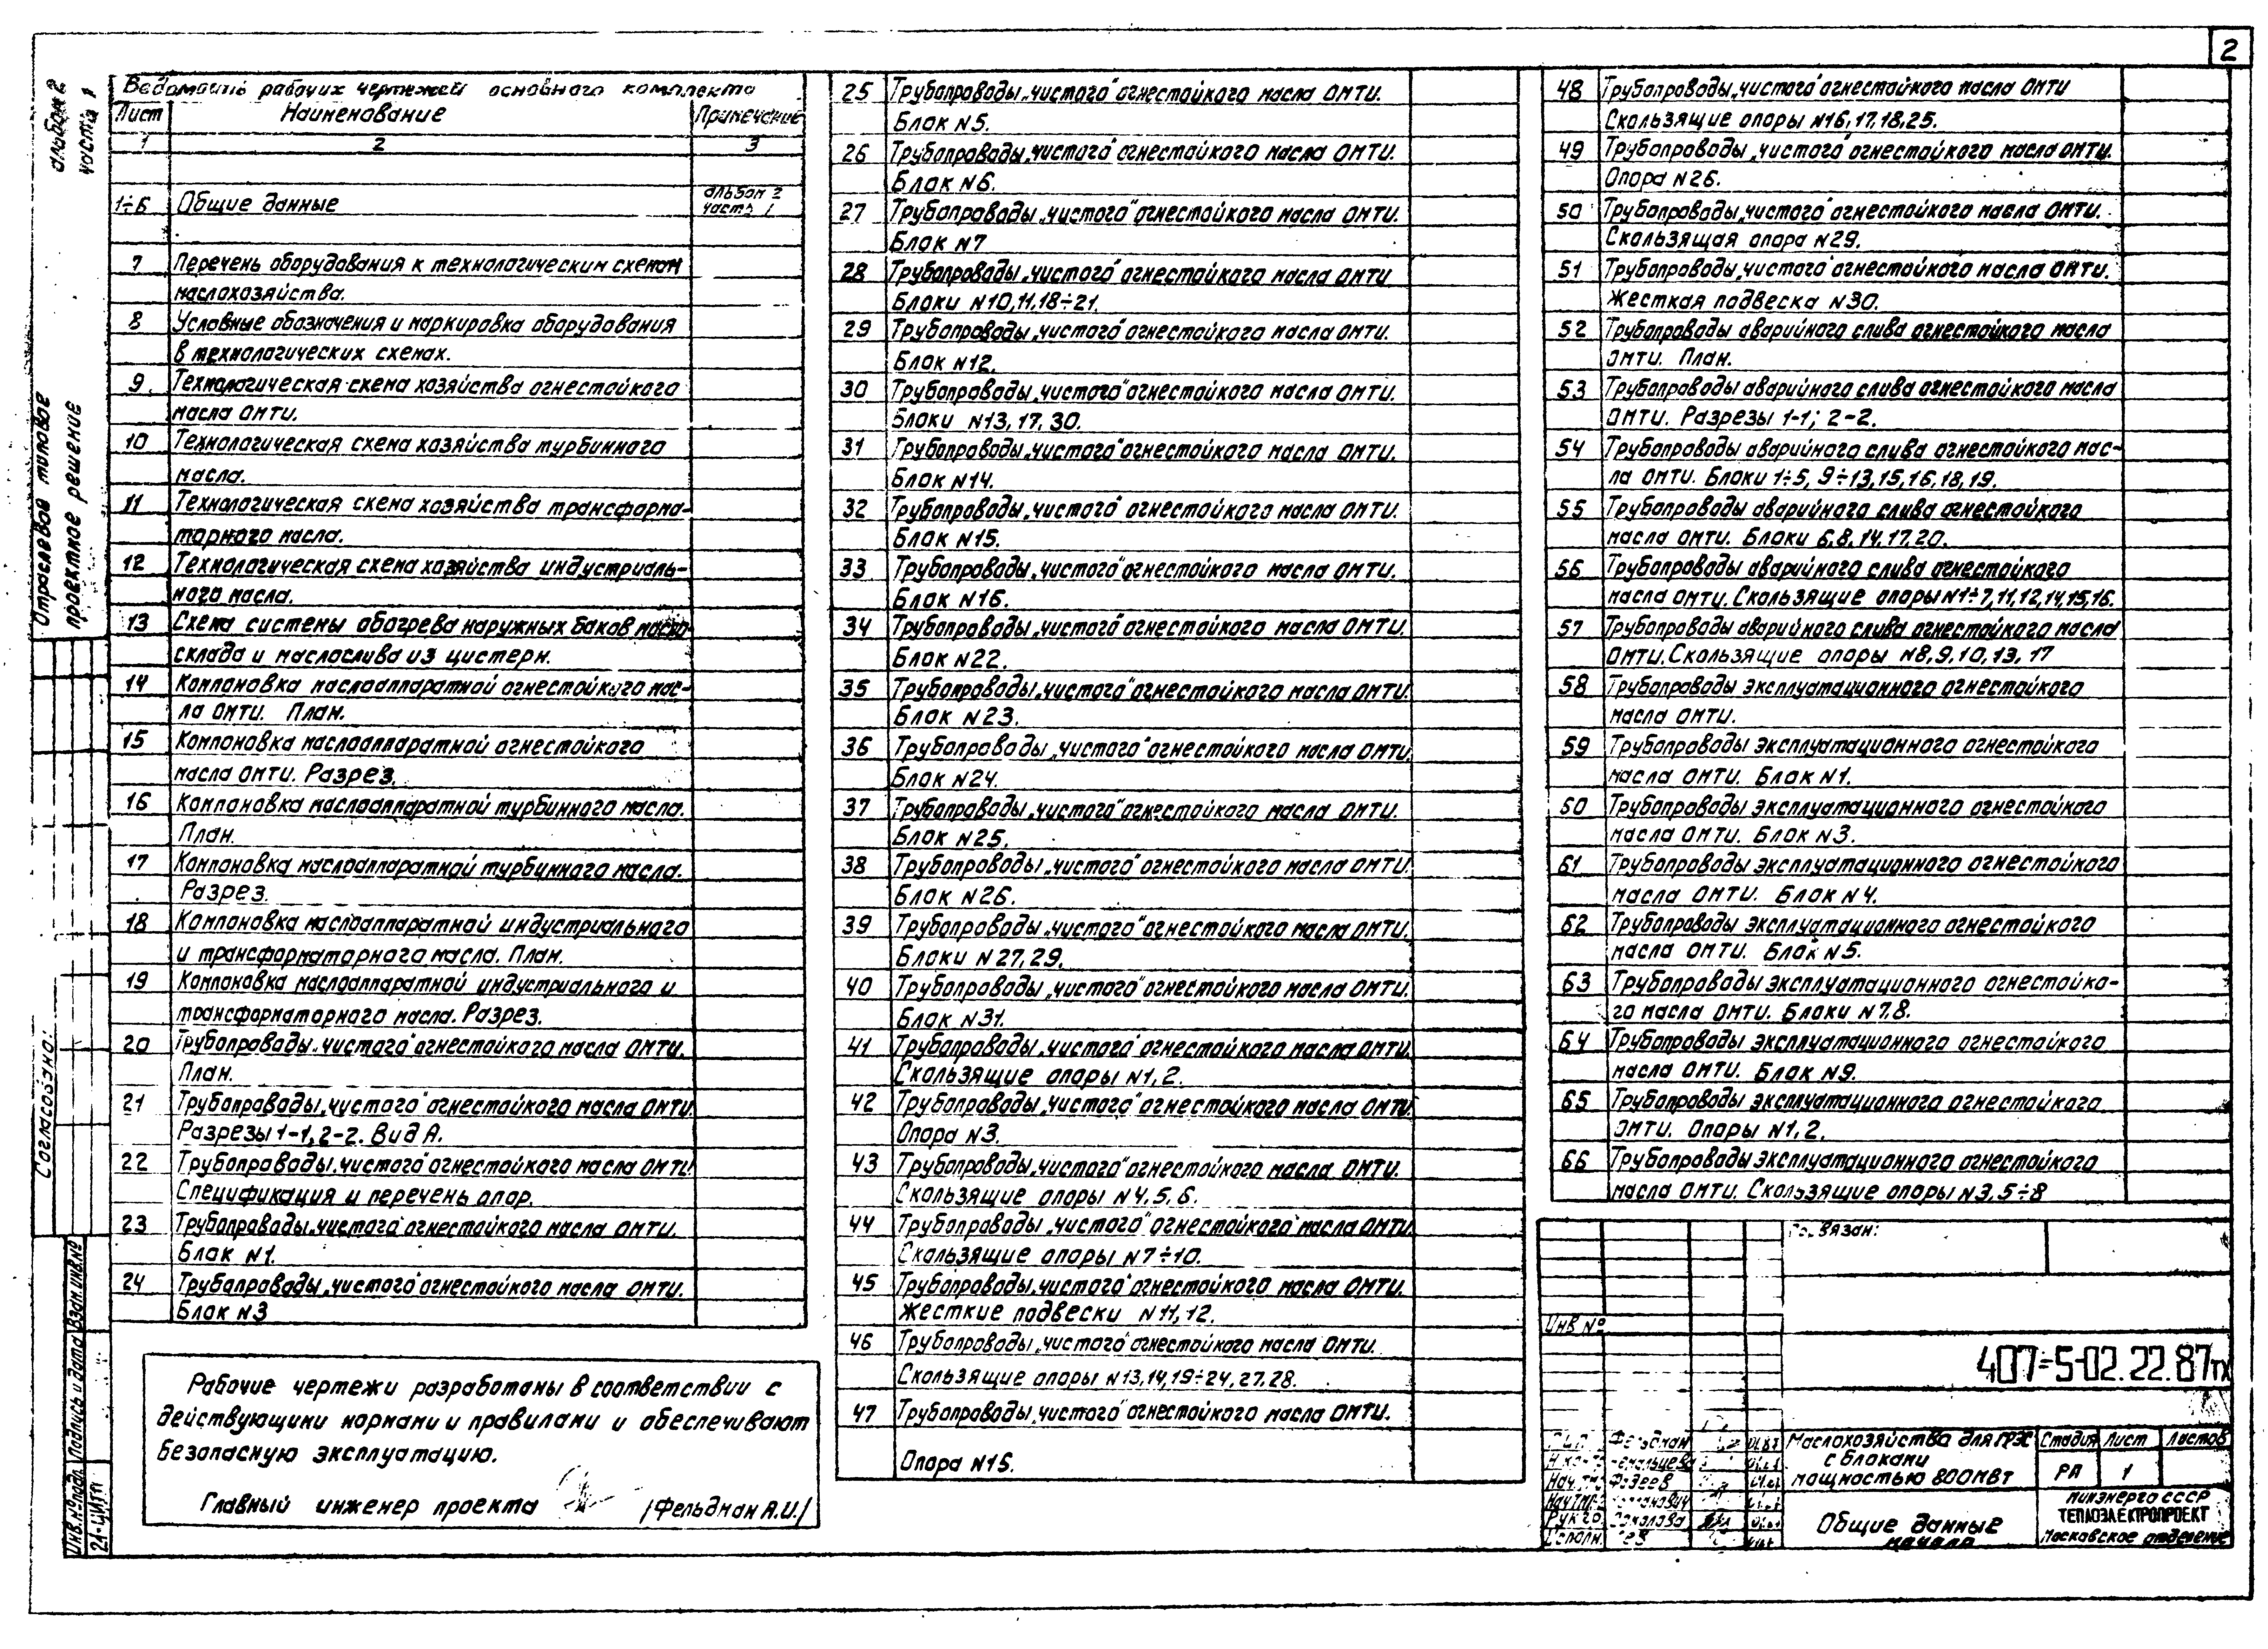 2
Альбом 2
часть 1
Отраслевое типовое
проектное решение
Согласовано:
Взам. инв. №
Подпись и дата
Инв. № подл.
Ведомость рабочих чертежей основного комплекта
Лист Наименование Примечание
1 2 3
1÷6 Общие данные альбом 2 часть 1
7 Перечень оборудования к технологическим схемам
маслохозяйства.
8 Условные обозначения и маркировка оборудования
в технологических схемах.
9. Технологическая схема хозяйства огнестойкого
масла ОМТИ.
10 Технологическая схема хозяйства турбинного
масла.
11 Технологическая схема хозяйства трансформа-
торного масла.
12 Технологическая схема хозяйства индустриаль-
ного масла.
13 Схема системы обогрева наружных баков масло-
склада и маслослива из цистерн.
14 Компоновка маслоаппаратной огнестойкого мас-
ла ОМТИ. План.
15 Компоновка маслоаппаратной огнестойкого
масла ОМТИ. Разрез.
16 Компоновка маслоаппаратной турбинного масла.
План.
17 Компоновка маслоаппаратной турбинного масла.
Разрез.
18 Компоновка маслоаппаратной индустриального
и трансформаторного масла. План.
19 Компоновка маслоаппаратной индустриального и
трансформаторного масла. Разрез.
20 Трубопроводы „чистого" огнестойкого масла ОМТИ.
План.
21 Трубопроводы „чистого" огнестойкого масла ОМТИ.
Разрезы 1-1, 2-2. Вид А.
22 Трубопроводы „чистого" огнестойкого масла ОМТИ
Спецификация и перечень опор.
23 Трубопроводы „чистого" огнестойкого масла ОМТИ.
Блок N1.
24 Трубопроводы „чистого" огнестойкого масла ОМТИ.
Блок N3
Рабочие чертежи разработаны в соответствии с
действующими нормами и правилами и обеспечивают
безопасную эксплуатацию.
Главный инженер проекта /Фельдман А.И./
25 Трубопроводы „чистого" огнестойкого масла ОМТИ.
Блок N5.
26 Трубопроводы „чистого" огнестойкого масла ОМТИ.
Блок N6.
27 Трубопроводы „чистого" огнестойкого масла ОМТИ.
Блок N7
28 Трубопроводы „чистого" огнестойкого масла ОМТИ
Блоки N10,11,18÷21.
29 Трубопроводы „чистого" огнестойкого масла ОМТИ.
Блок N12.
30 Трубопроводы „чистого" огнестойкого масла ОМТИ.
Блоки N13, 17, 30.
31 Трубопроводы „чистого" огнестойкого масла ОМТИ.
Блок N14.
32 Трубопроводы „чистого" огнестойкого масла ОМТИ.
Блок N15.
33 Трубопроводы „чистого" огнестойкого масла ОМТИ.
Блок N16.
34 Трубопроводы „чистого" огнестойкого масла ОМТИ.
Блок N22.
35 Трубопроводы „чистого" огнестойкого масла ОМТИ.
Блок N23.
36 Трубопроводы „чистого" огнестойкого масла ОМТИ.
Блок N24.
37 Трубопроводы „чистого" огнестойкого масла ОМТИ.
Блок N25.
38 Трубопроводы „чистого" огнестойкого масла ОМТИ.
Блок N26.
39 Трубопроводы „чистого" огнестойкого масла ОМТИ.
Блоки N27, 29.
40 Трубопроводы „чистого" огнестойкого масла ОМТИ.
Блок N31.
41 Трубопроводы „чистого" огнестойкого масла ОМТИ.
Скользящие опоры N1, 2.
42 Трубопроводы „чистого" огнестойкого масла ОМТИ
Опора N3.
43 Трубопроводы „чистого" огнестойкого масла ОМТИ.
Скользящие опоры N4, 5, 6.
44 Трубопроводы „чистого" огнестойкого масла ОМТИ.
Скользящие опоры N7÷10.
45 Трубопроводы „чистого" огнестойкого масла ОМТИ.
Жесткие подвески N11, 12.
46 Трубопроводы „чистого" огнестойкого масла ОМТИ.
Скользящие опоры N13,14,19÷24, 27.28.
47 Трубопроводы „чистого" огнестойкого масла ОМТИ.
Опора N15.
48 Трубопроводы „чистого" огнестойкого масла ОМТИ
Скользящие опоры N16, 17, 18, 25.
49 Трубопроводы „чистого" огнестойкого масла ОМТИ.
Опора N26.
50 Трубопроводы „чистого" огнестойкого масла ОМТИ.
Скользящая опора N29.
51 Трубопроводы „чистого" огнестойкого масла ОМТИ.
Жесткая подвеска N30.
52 Трубопроводы аварийного слива огнестойкого масла
ОМТИ. План.
53 Трубопроводы аварийного слива огнестойкого масла
ОМТИ. Разрезы 1-1; 2-2.
54 Трубопроводы аварийного слива огнестойкого мас-
ла ОМТИ. Блоки 1÷5, 9÷13, 15, 16, 18, 19.
55 Трубопроводы аварийного слива огнестойкого
масла ОМТИ. Блоки 6, 8, 14, 17, 20.
56 Трубопроводы аварийного слива огнестойкого
масла ОМТИ. Скользящие опоры N1÷7, 11, 12, 14, 15, 16.
57 Трубопроводы аварийного слива огнестойкого масла
ОМТИ. Скользящие опоры N8, 9, 10, 13, 17
58 Трубопроводы эксплуатационного огнестойкого
масла ОМТИ.
59 Трубопроводы эксплуатационного огнестойкого
масла ОМТИ. Блок N1.
60 Трубопроводы эксплуатационного огнестойкого
масла ОМТИ. Блок N3.
61 Трубопроводы эксплуатационного огнестойкого
масла ОМТИ. Блок N4.
62 Трубопроводы эксплуатационного огнестойкого
масла ОМТИ. Блок N5.
63 Трубопроводы эксплуатационного огнестойко-
го масла ОМТИ. Блоки N7,8.
64 Трубопроводы эксплуатационного огнестойкого
масла ОМТИ. Блок N9.
65 Трубопроводы эксплуатационного огнестойкого
ОМТИ. Опоры N1, 2.
66 Трубопроводы эксплуатационного огнестойкого
масла ОМТИ. Скользящие опоры N3, 5÷8
Инв №
407-5-02.22.87 ТХ
Фельдман
Фадеев
Рук гр. Соколова
Исполн.
Маслохозяйства для ГРЭС
с блоками
мощностью 800 МВт
Стадия Лист Листов
РП 1
Общие данные
начало
Минэнерго СССР
ТЕПЛОЭЛЕКТРОПРОЕКТ
Московское отделение